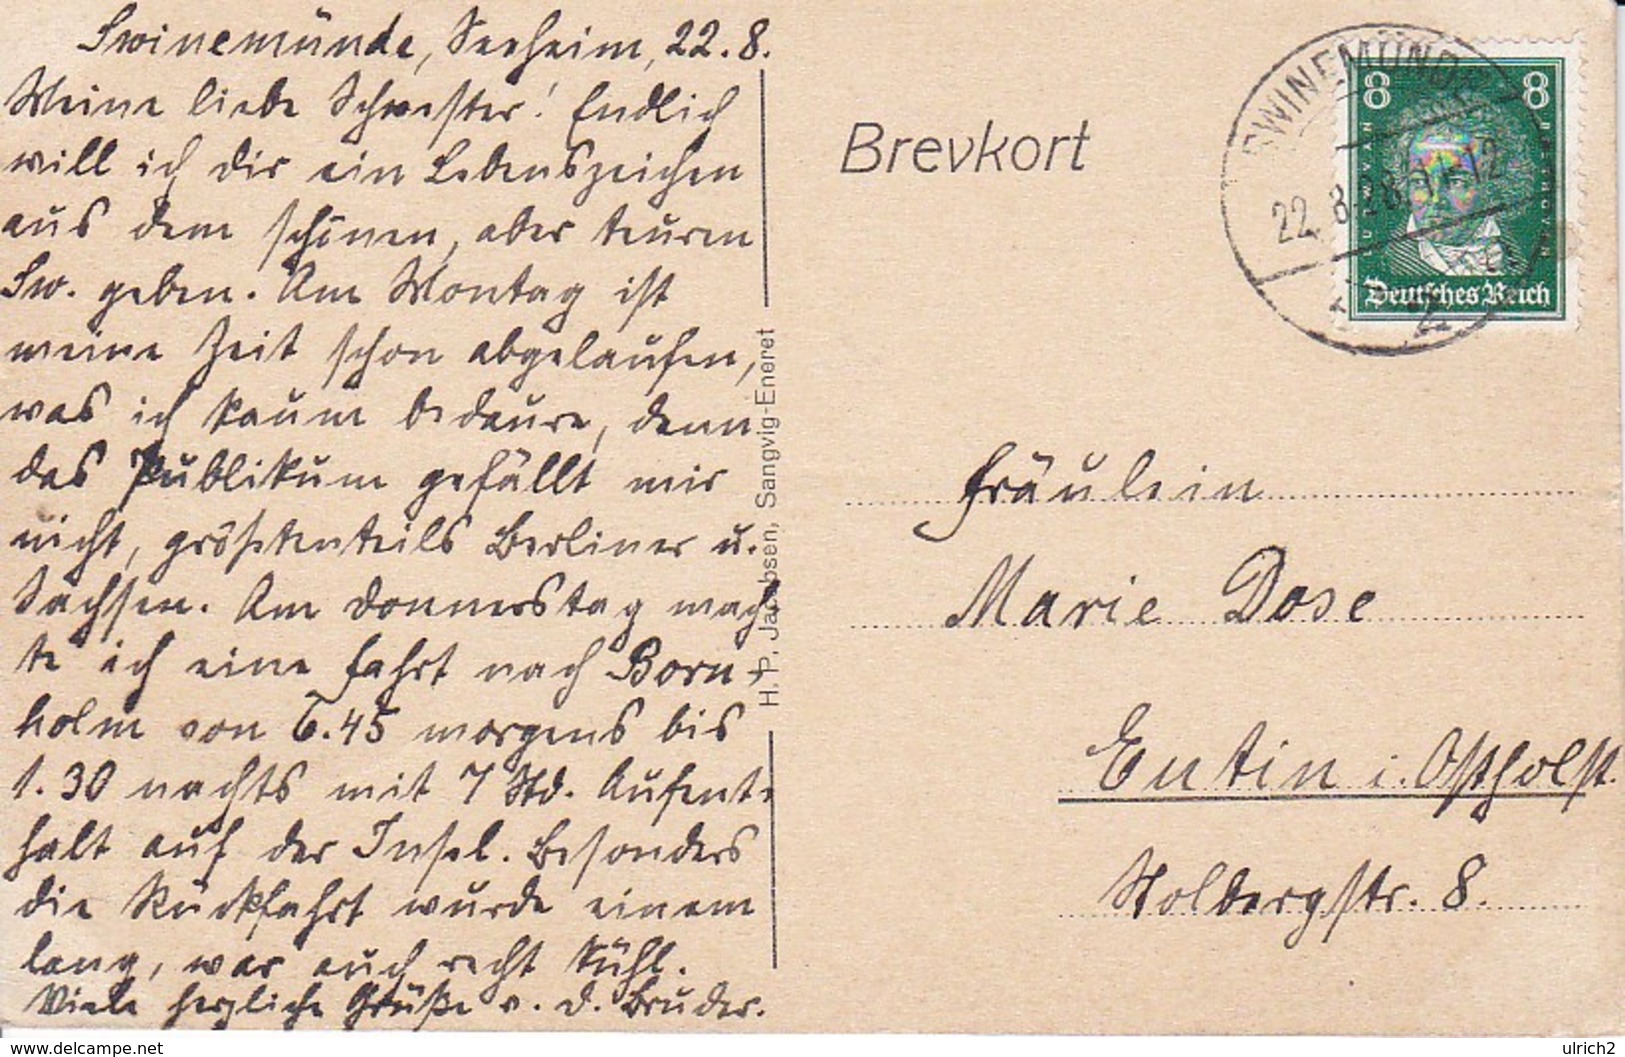 Swinemünde, Seeheim, 22.8.
Meine liebe Schwester! Endlich
will ich dir ein Lebenszeichen
aus dem schönen, aber teuren
Sw. geben. Am Montag ist
meine Zeit schon abgelaufen,
was ich kaum bedaure, denn
das Publikum gefällt mir
nicht, größtenteils Berliner u.
Sachsen. Am Donnerstag mach-
te ich eine Fahrt nach Born-
holm von 6.45 morgens bis
1.30 nachts mit 7 Std. Aufent-
halt auf der Insel. Besonders
die Rückfahrt wurde einem
lang, war auch recht kühl.
Viele herzliche Grüße v. d. Bruder.
H. P. Jacobsen, Sangvig-Eneret
Brevkort
SWINEMÜNDE
22.8.28.11-12
8 8
LUDWIG VAN BEETHOVEN
Deutsches Reich
Fräulein
Marie Dose
Eutin i. Ostholst.
Stolbergstr. 8.
delcampe.net
ulrich2